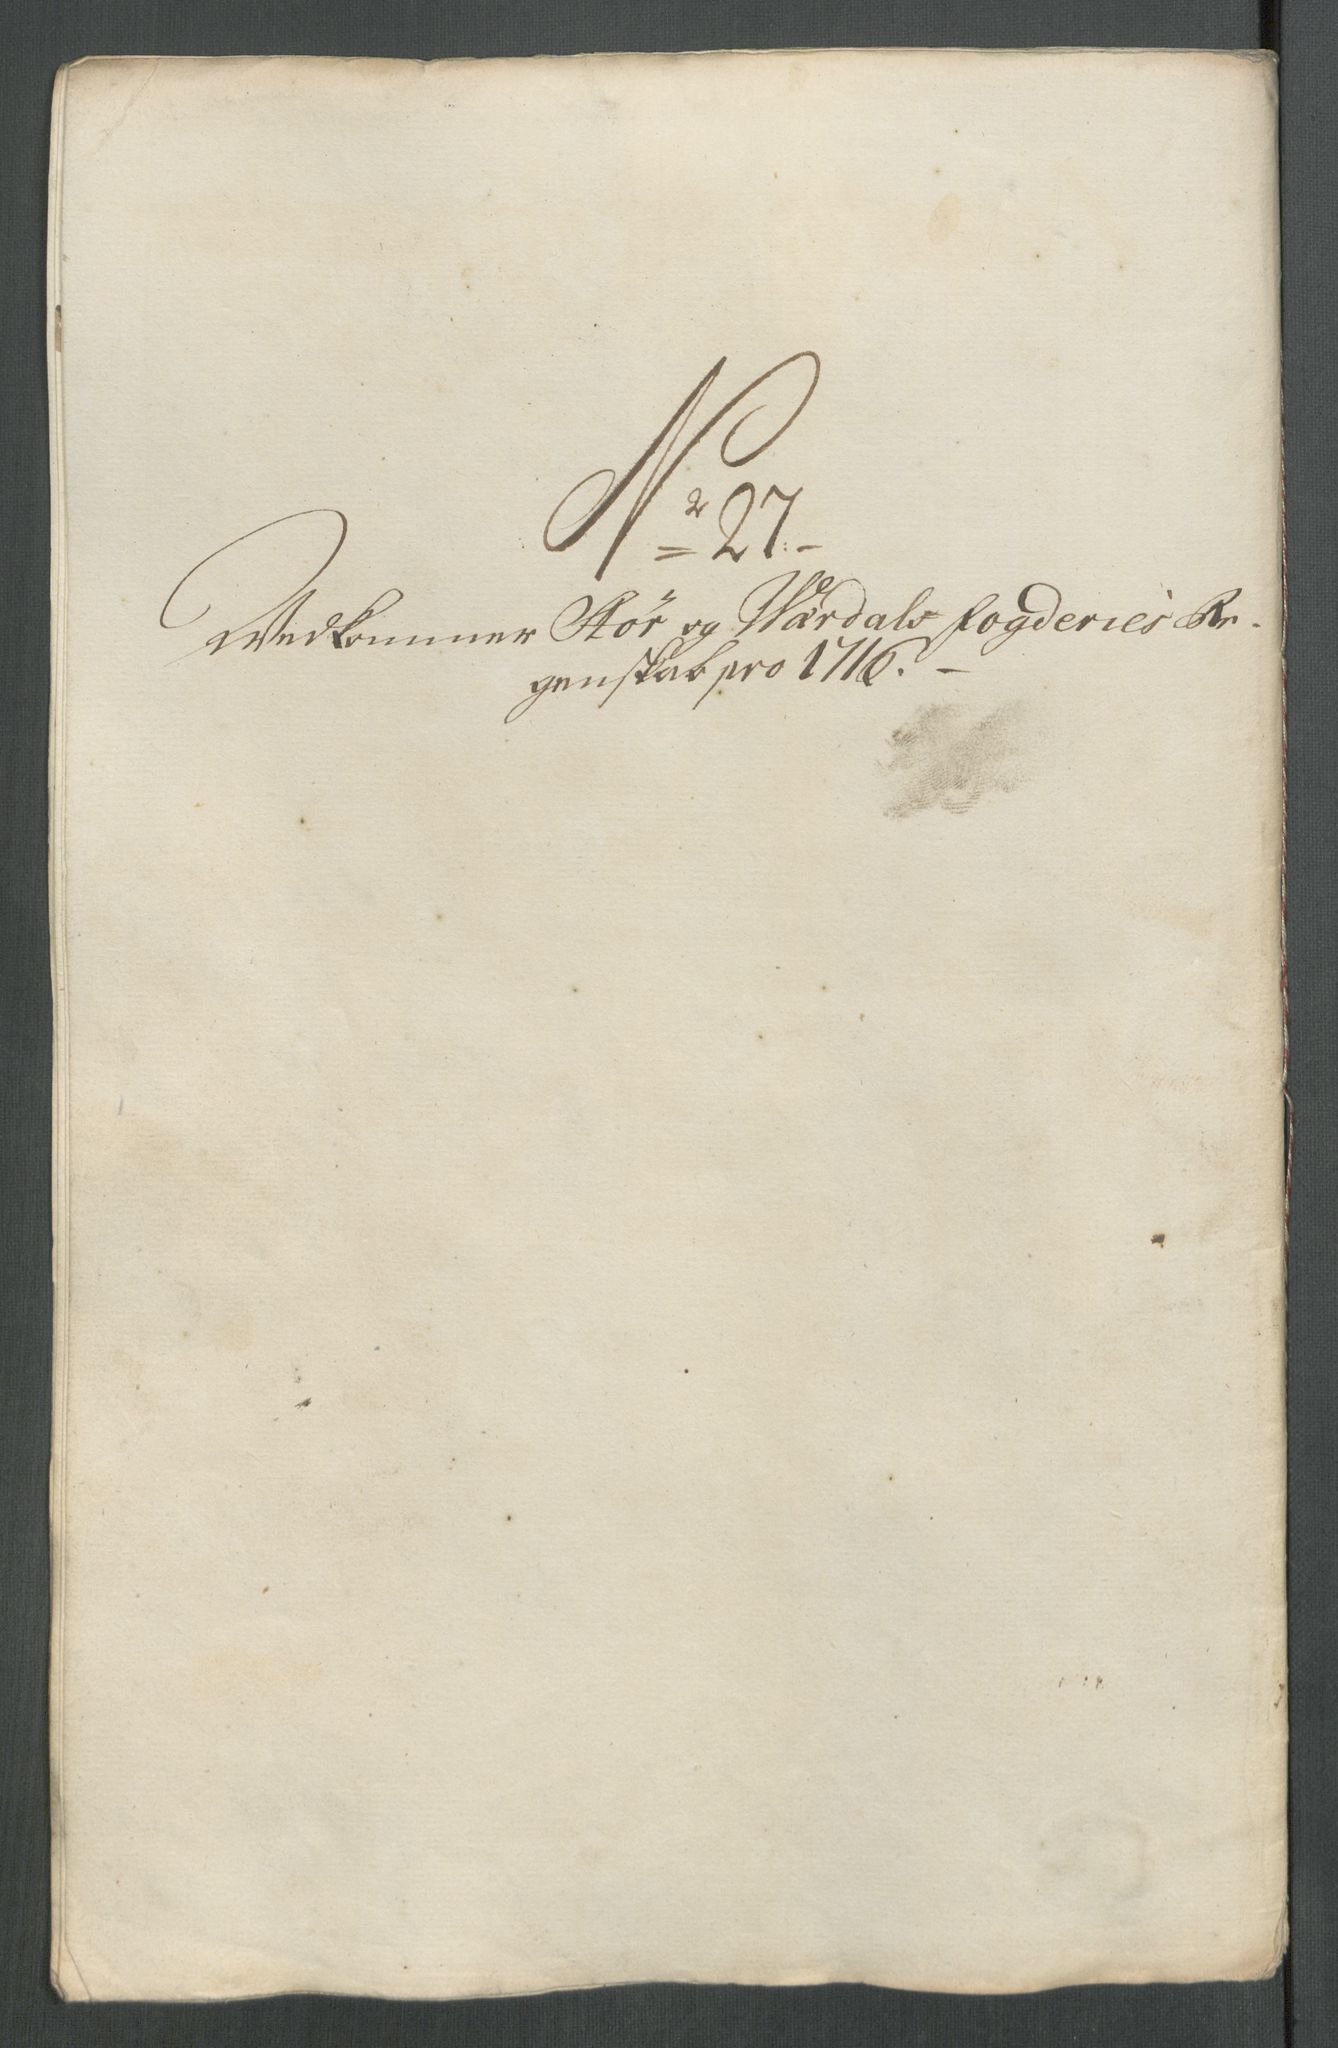 No 27.-
Vedkommer Stør og Værdals fogderies Re-
genskab pro 1716. -